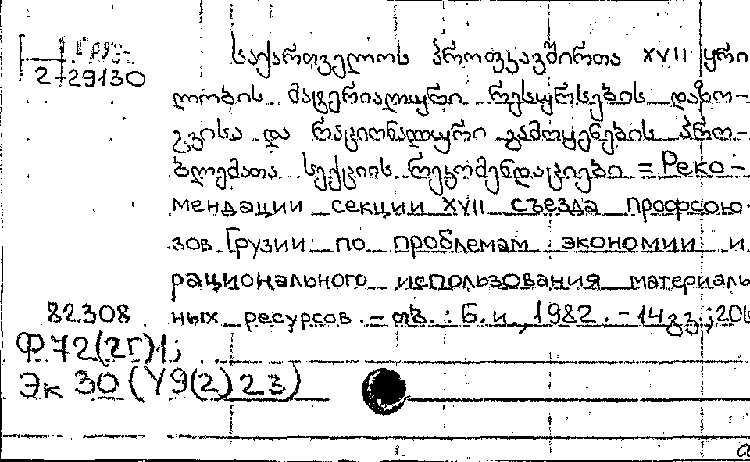 Груз.
2-29130
საქართველოს პროფკავშირთა XVII ყრი
ლობის მატერიალური რესურსების დაზო-
გვისა და რაციონალური გამოყენების პრო-
ბლემათა სექციის რეკომენდაციები = Реко-
мендации секции XVII съезда профсою
зов Грузии по проблемам экономии и
рационального использования материаль
ных ресурсов. - თბ. : Б.и., 1982. - 14გვ.; 20
82.308
Ф72(2Г)1;
Эк 30 (У9(2)23)